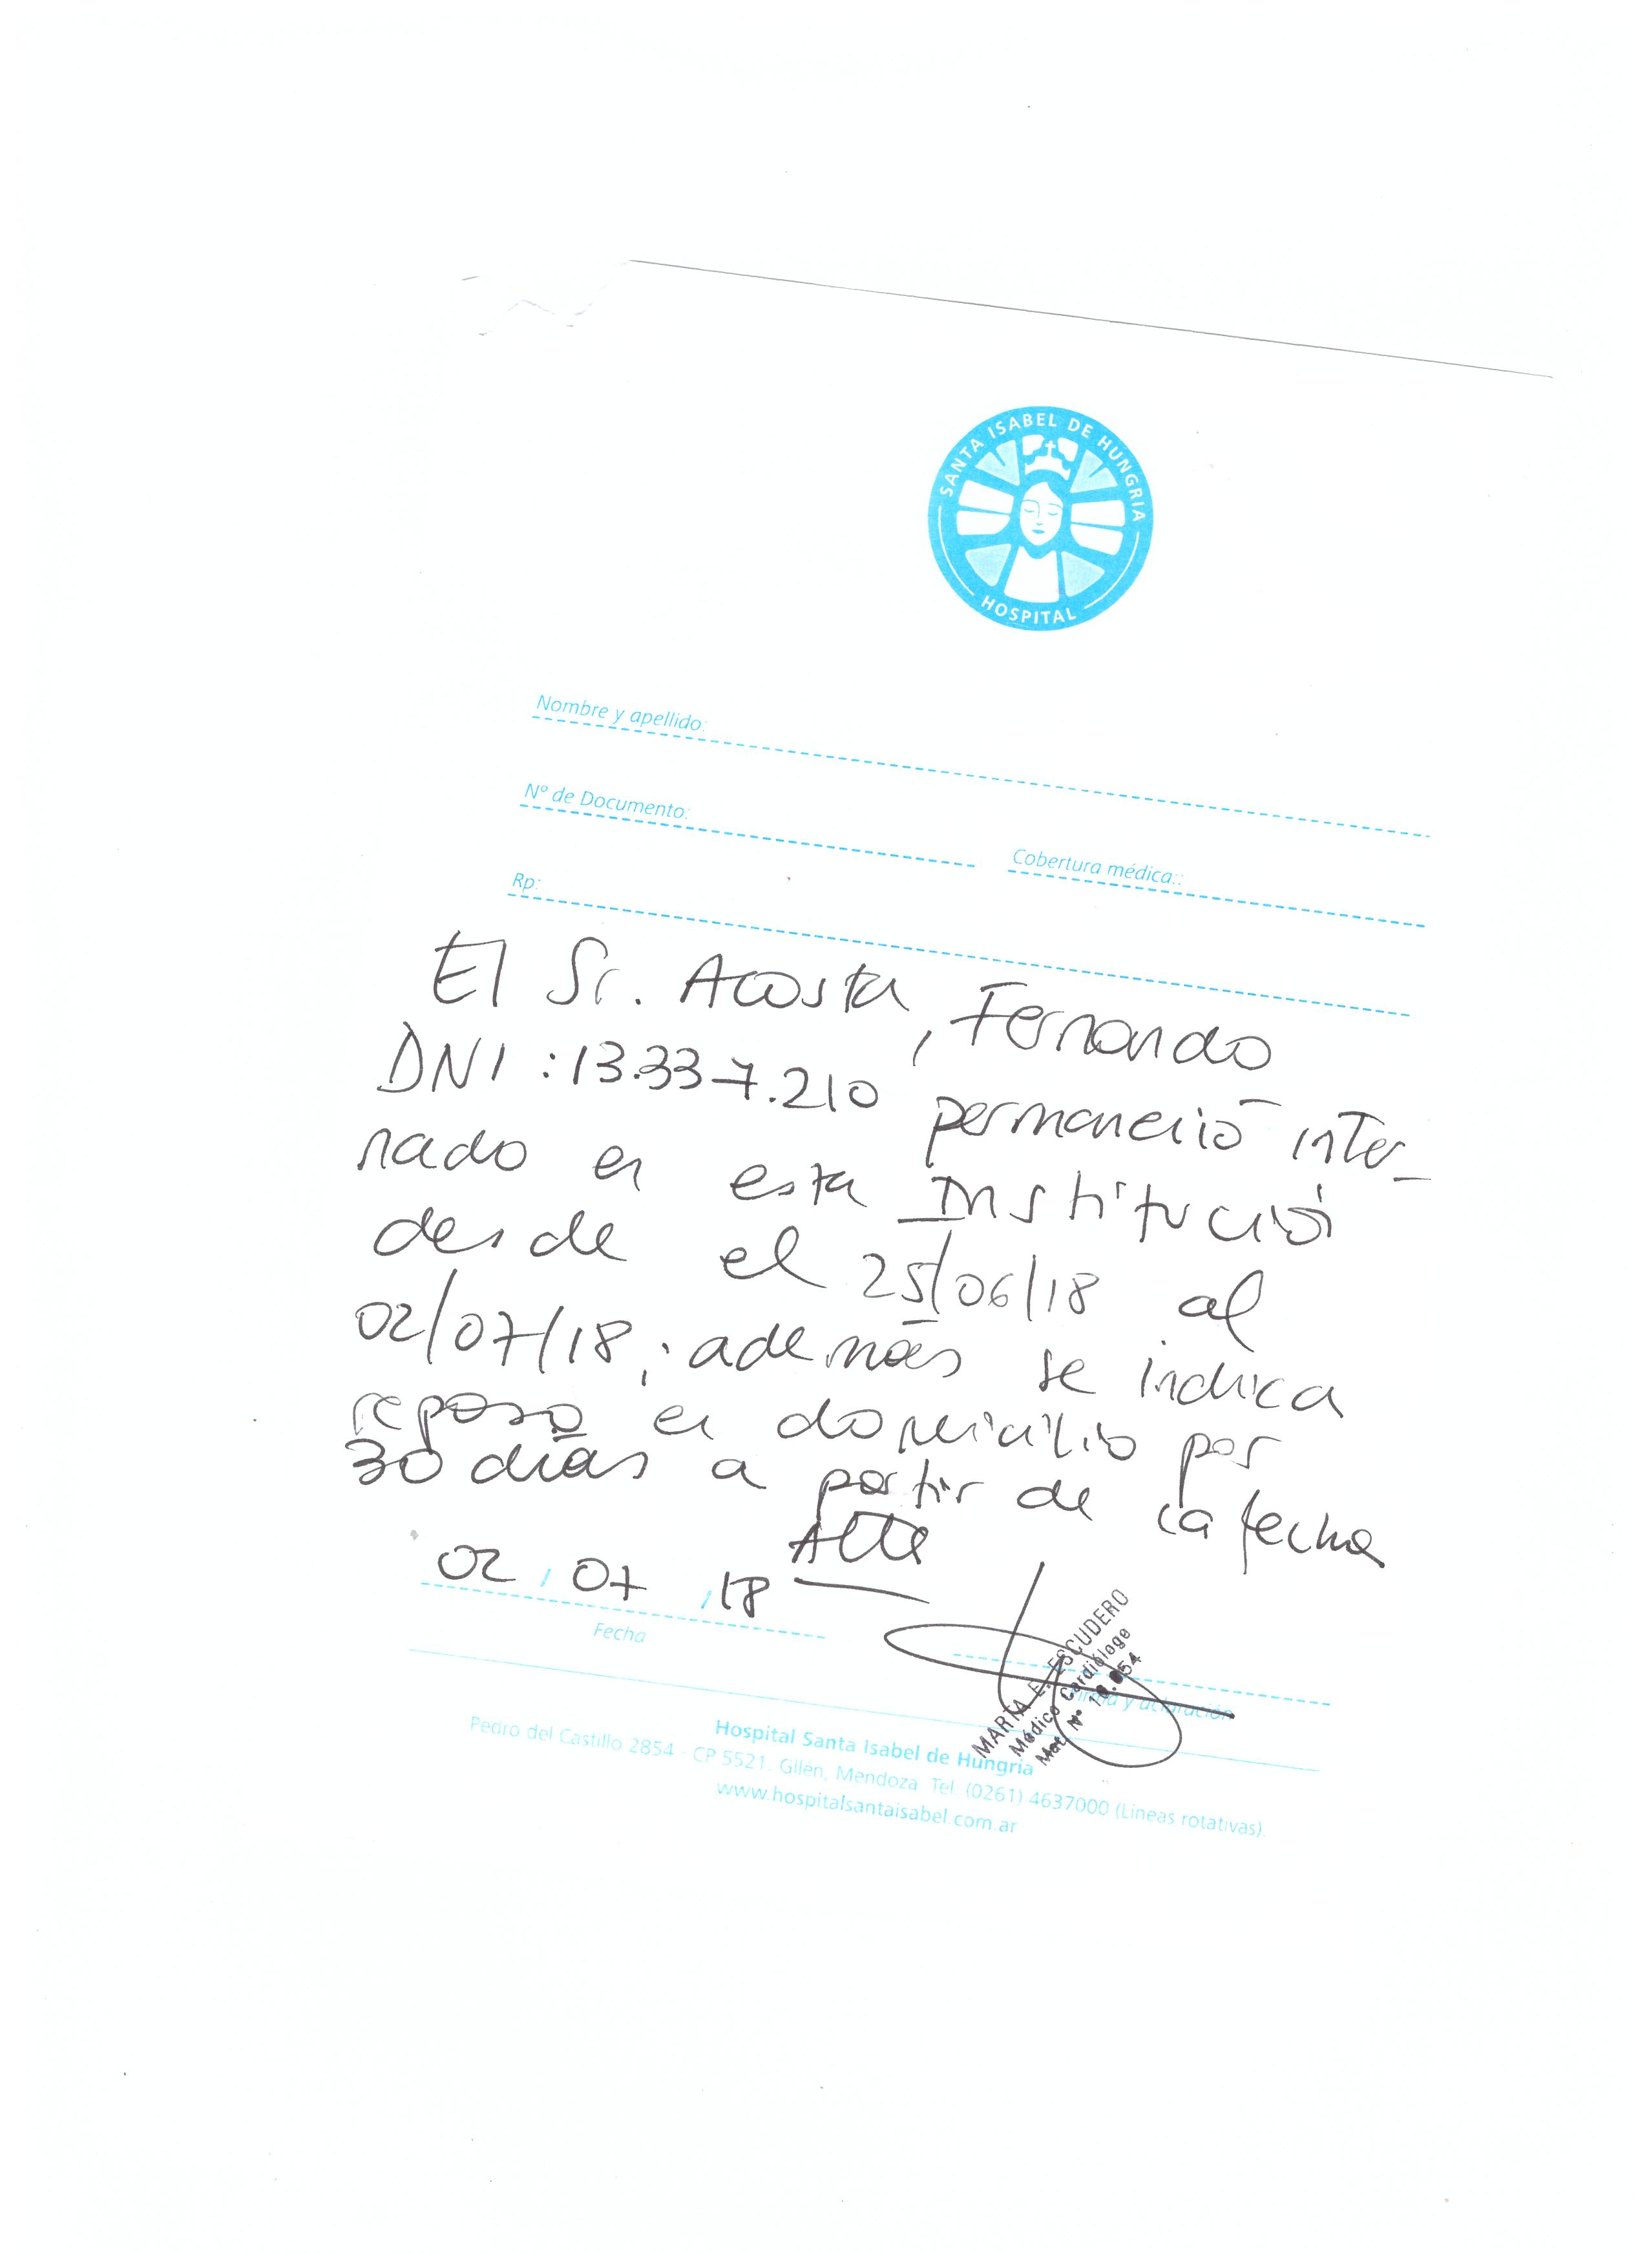 SANTA ISABEL DE HUNGRIA
HOSPITAL
Nombre y apellido:
Nº de Documento:
Cobertura médica::
Rp:
El Sr. Acosta, Fernando
DNI: 13.337.210 permaneció inter-
nado en esta Institució
desde el 25/06/18 al
02/07/18; además se indica
reposo en domicilio por
30 días a partir de la fecha
Atte
02 / 07 / 18
Fecha
MARIA E. ESCUDERO
Médico Cardiólogo
Mat. Nº
Firma y aclaración
Hospital Santa Isabel de Hungría
Pedro del Castillo 2854 - CP 5521. Gllén, Mendoza. Tel: (0261) 4637000 (Líneas rotativas).
www.hospitalsantaisabel.com.ar